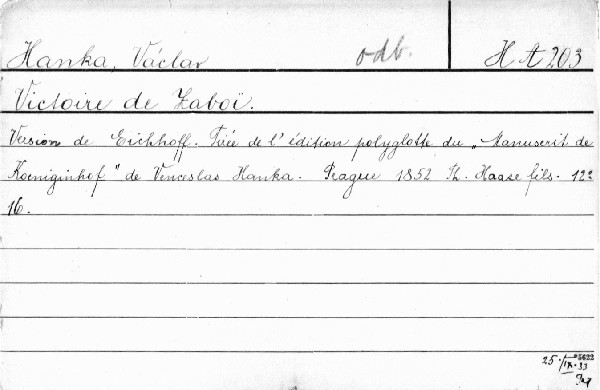 Hanka, Václav odb. H A 203
Victoire de Zaboï.
Version de Eichhoff. Tirée de l'édition polyglotte du „Manuscrit de
Koeniginhof" de Venceslas Hanka. Prague 1852 Th. Haase fils. 12°
16.
25./IX.33